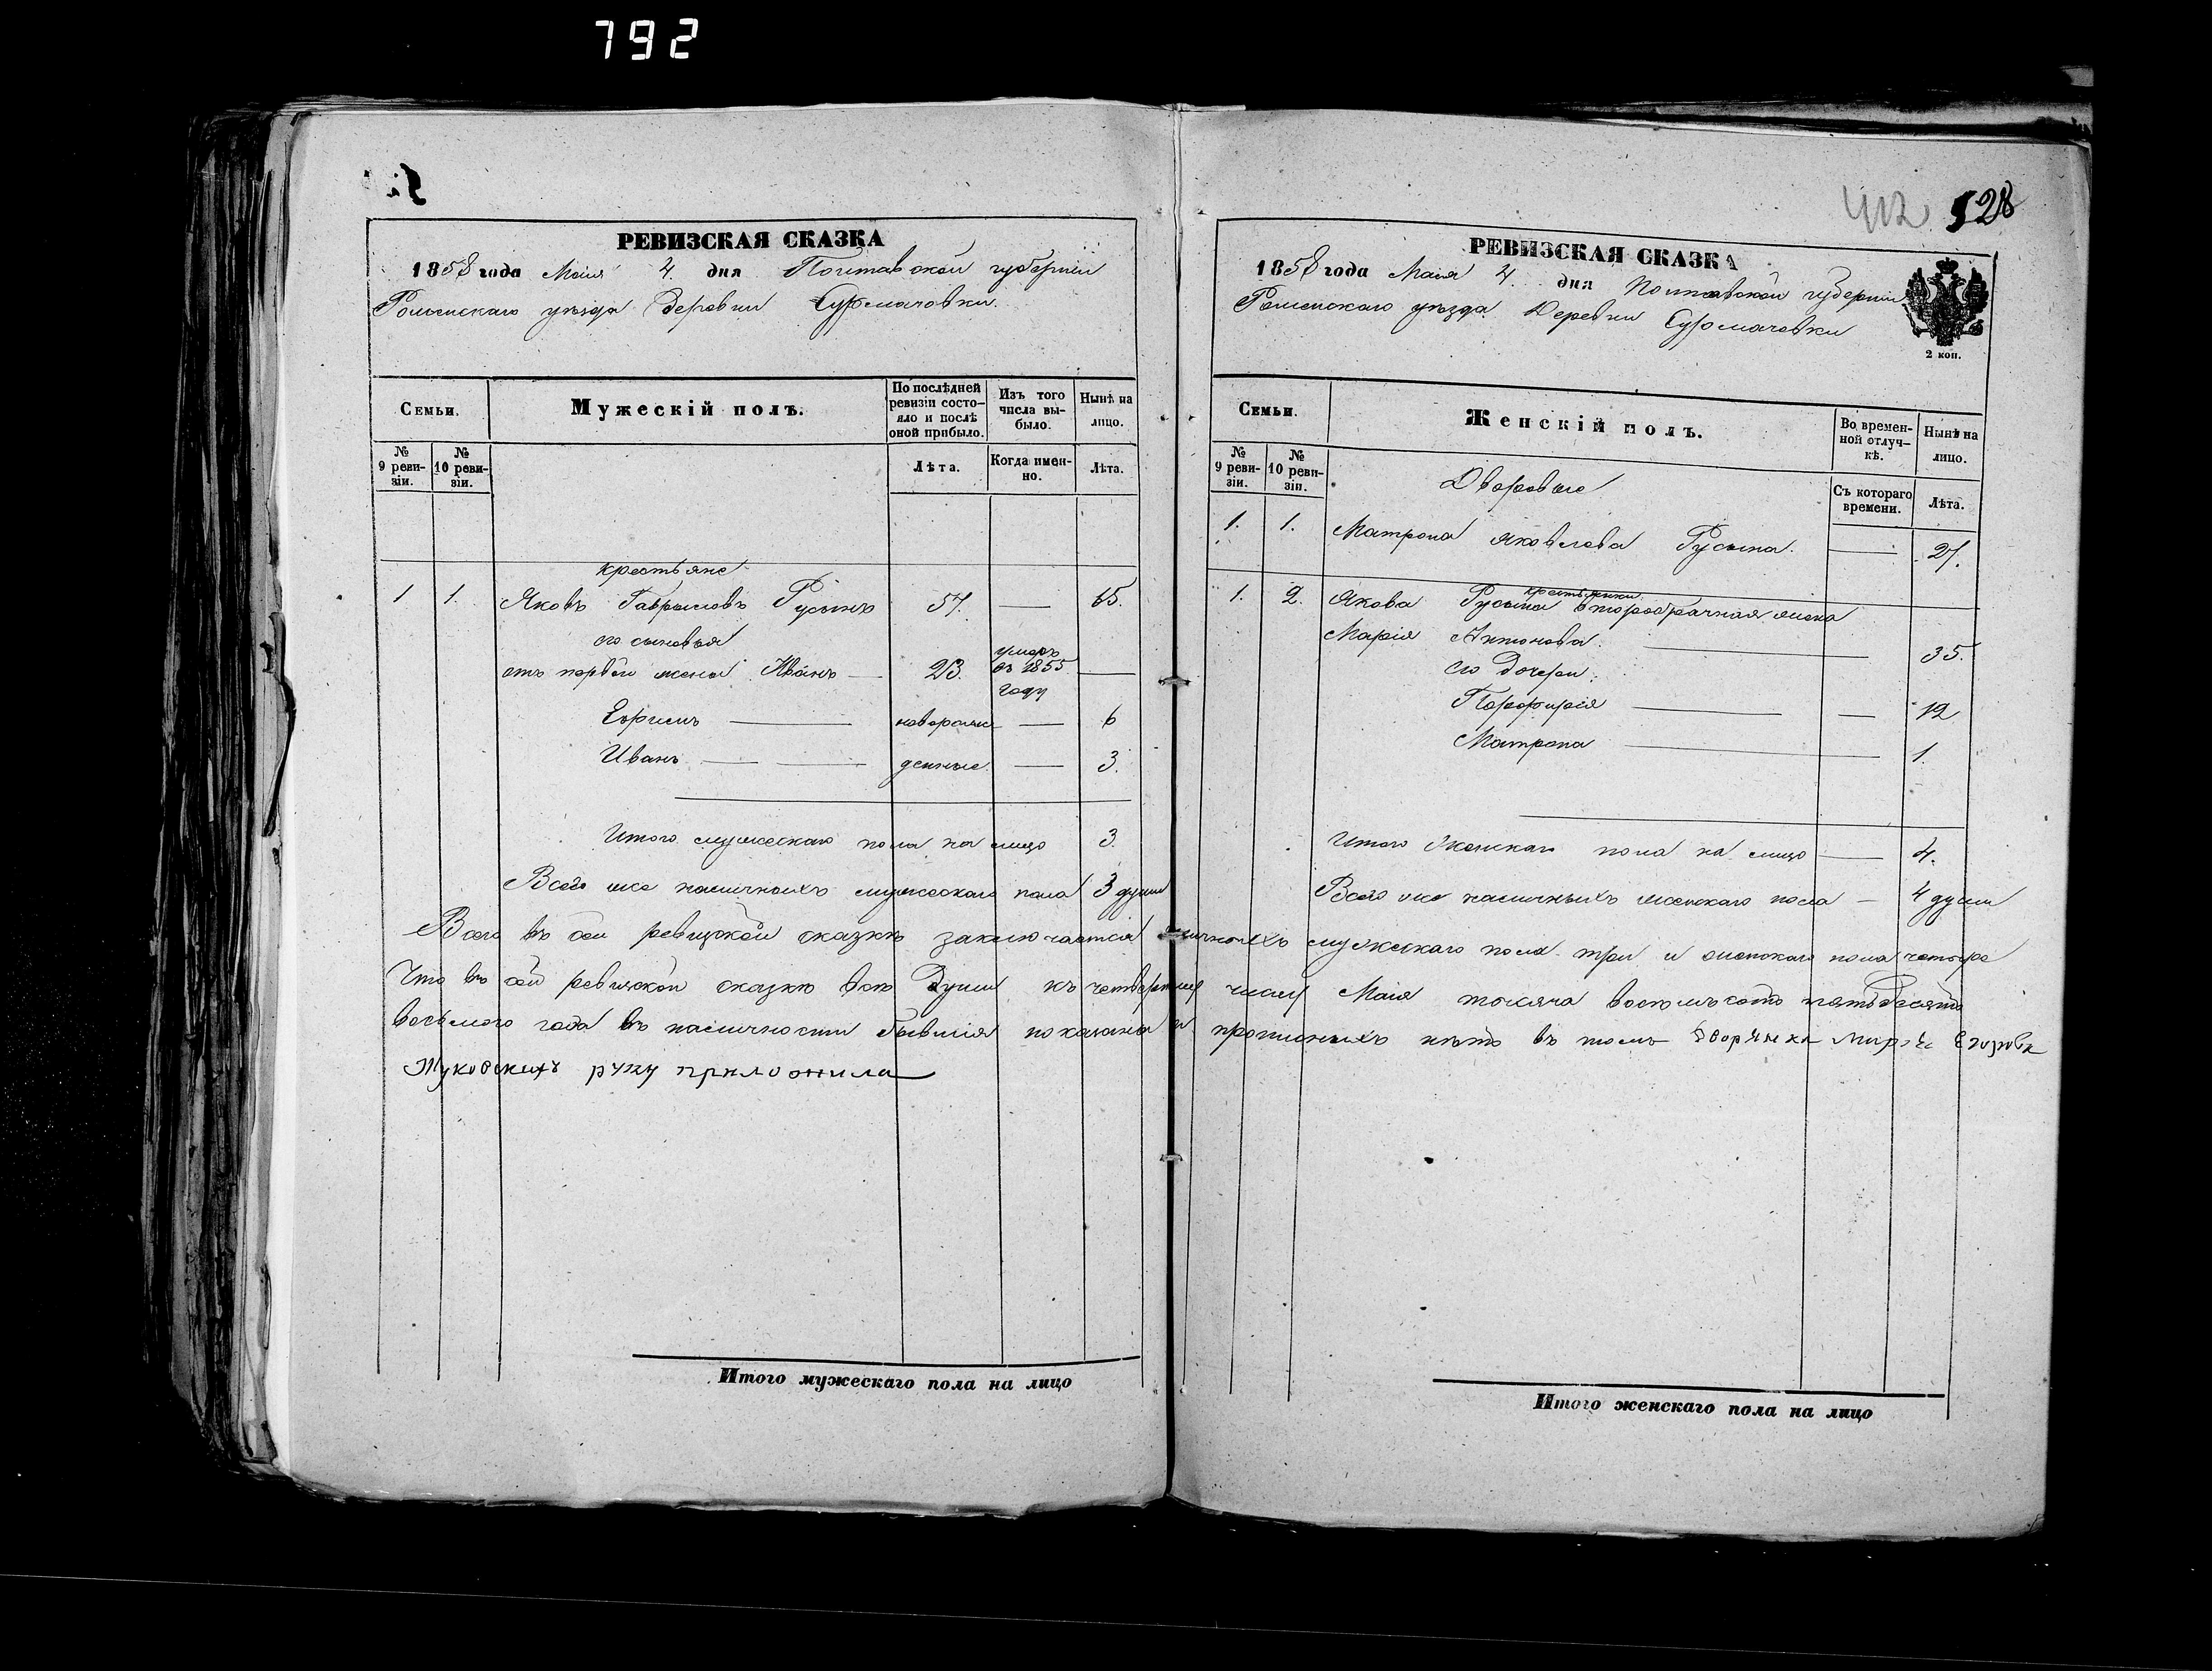 792
РЕВИЗСКАЯ СКАЗКА
1858 года Маія 4. дня Полтавской губерніи
Роменскаго уѣзда Деревни Сурмачовки.
Семьи.
Мужескій полъ.
По послѣдней ревизіи состояло и послѣ оной прибыло.
Изъ того числа выбыло.
Нынѣ на лицо.
№ 9 ревизіи.
№ 10 ревизіи.
Лѣта.
Когда именно.
Лѣта.
крестьяне
1 1. Яковъ Гавриловъ Русинъ 57. — 65.
его сыновья
отъ первой жены Иванъ — 23. умеръ въ 1855 году —
Ефимъ — новорож — 6
Иванъ — денные. — 3.
Итого мужескаго пола на лицо 3.
Всего же наличныхъ мужескаго пола 3 души
412 528
РЕВИЗСКАЯ СКАЗКА
1858 года Маія 4. дня Полтавской губерніи
Роменскаго уѣзда Деревни Сурмачовки
2 коп.
Семьи.
Женскій полъ.
Во временной отлучкѣ.
Нынѣ на лицо.
№ 9 ревизіи.
№ 10 ревизіи.
Съ котораго времени.
Лѣта.
Дворовые
1. 1. Матрона Яковлева Русина. — 27.
крестьянки
1. 2. Якова Русина второбрачная жена
Марія Антонова. — 35.
его дочери:
Порфирія — — 12
Матрона — 1.
Итого женскаго пола на лицо — 4.
Всего же наличныхъ женскаго пола — 4 души
Всего въ сей ревизской сказкѣ заключается наличныхъ мужескаго пола три и женскаго пола четыре
Что въ сей ревизской сказкѣ всѣ Души къ четвертому числу Маія тысяча восемьсотъ пятьдесятъ
восьмого года въ наличности бывшія показаны и прописныхъ нѣтъ въ томъ Дворянка
руку приложила
Итого мужескаго пола на лицо
Итого женскаго пола на лицо